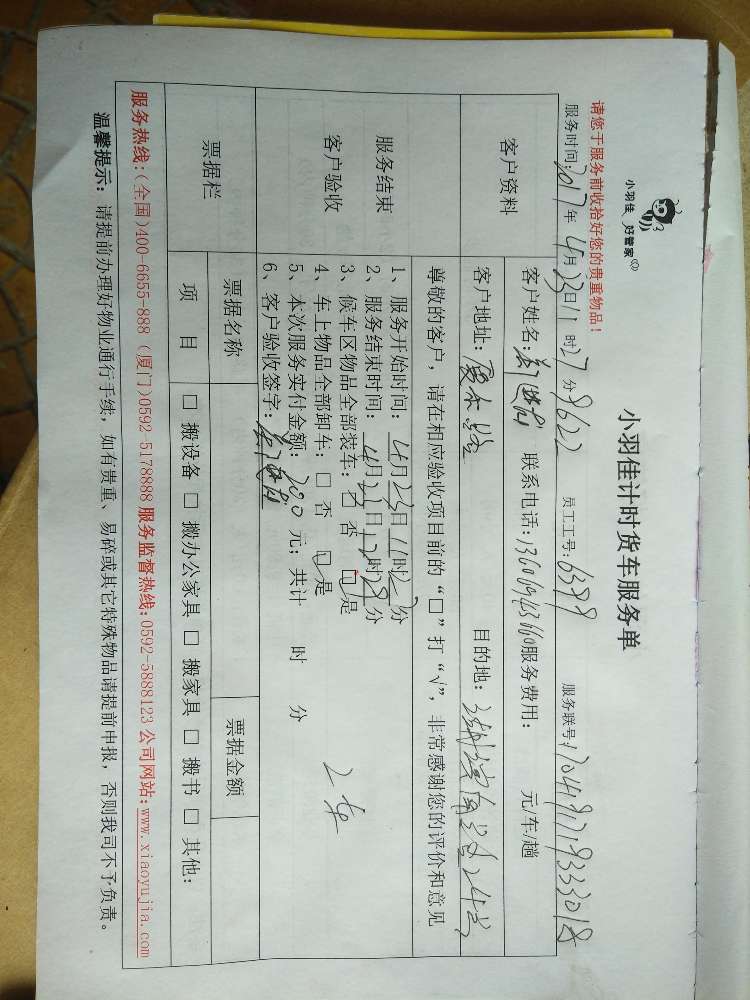 小羽佳 好管家
小羽佳计时货车服务单
请您于服务前收拾好您的贵重物品！
服务时间:2017年4月23日11时27分 8622 员工工号: 6379 服务联号: 170419171933018
客户资料
客户姓名: 联系电话:13606943660服务费用: 元/车/趟
客户地址: 目的地:
服务结束
客户验收
尊敬的客户，请在相应验收项目前的“□”打“√”，非常感谢您的评价和意见
1、服务开始时间: 4月23日11时27分
2、服务结束时间: 4月23日12时29分
3、候车区物品全部装车: □ 否 □ 是
4、车上物品全部卸车: □ 否 □ 是
5、本次服务实付金额: 200 元; 共计 时 分
6、客户验收签字:
2车
票据栏
票据名称 票据金额
项 目
□ 搬设备 □ 搬办公家具 □ 搬家具 □ 搬书 □ 其他:
服务热线:(全国)400-6655-888 (厦门)0592-5178888 服务监督热线:0592-5888123 公司网站:www.xiaoyujia.com
温馨提示: 请提前办理好物业通行手续，如有贵重、易碎或其它特殊物品请提前申报，否则我司不予负责。